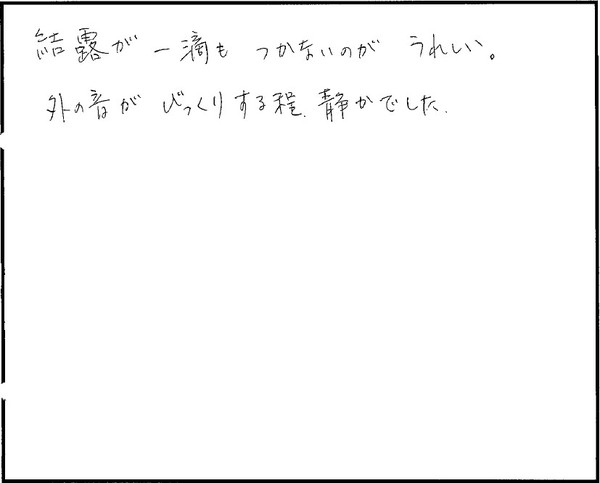 結露が一滴もつかないのがうれしい。
外の音がびっくりする程、静かでした.